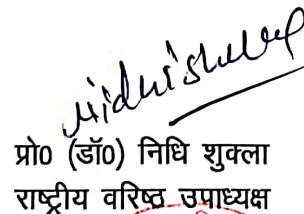 Nidhishukla
प्रो0 (डॉ0) निधि शुक्ला
राष्ट्रीय वरिष्ठ उपाध्यक्ष